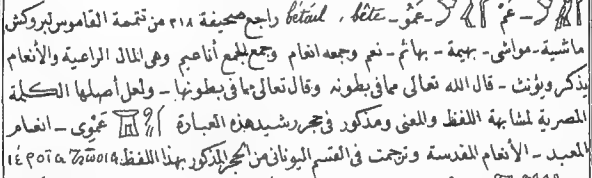 عَمْ – عَمُو – bétail, bête راجع صحيفة ٢١٨ من تتمة القاموس لبروكش
ماشية – مواشى – بهيمة – بهائم – نعم وجمعه انعام وجمع الجمع أناعيم وهى المال الراعية والأنعام
يذكر ويؤنث – قال الله تعالى مما فى بطونه وقال تعالى مما فى بطونها – ولعل أصلها الكلمة
المصرية لمشابهة اللفظ والمعنى ومذكور فى حجر رشيد هذه العبارة عَمُوِى – انعام
المعبد – الأنعام المقدسة وترجمت فى القسم اليونانى من الحجر المذكور بهذا اللفظ